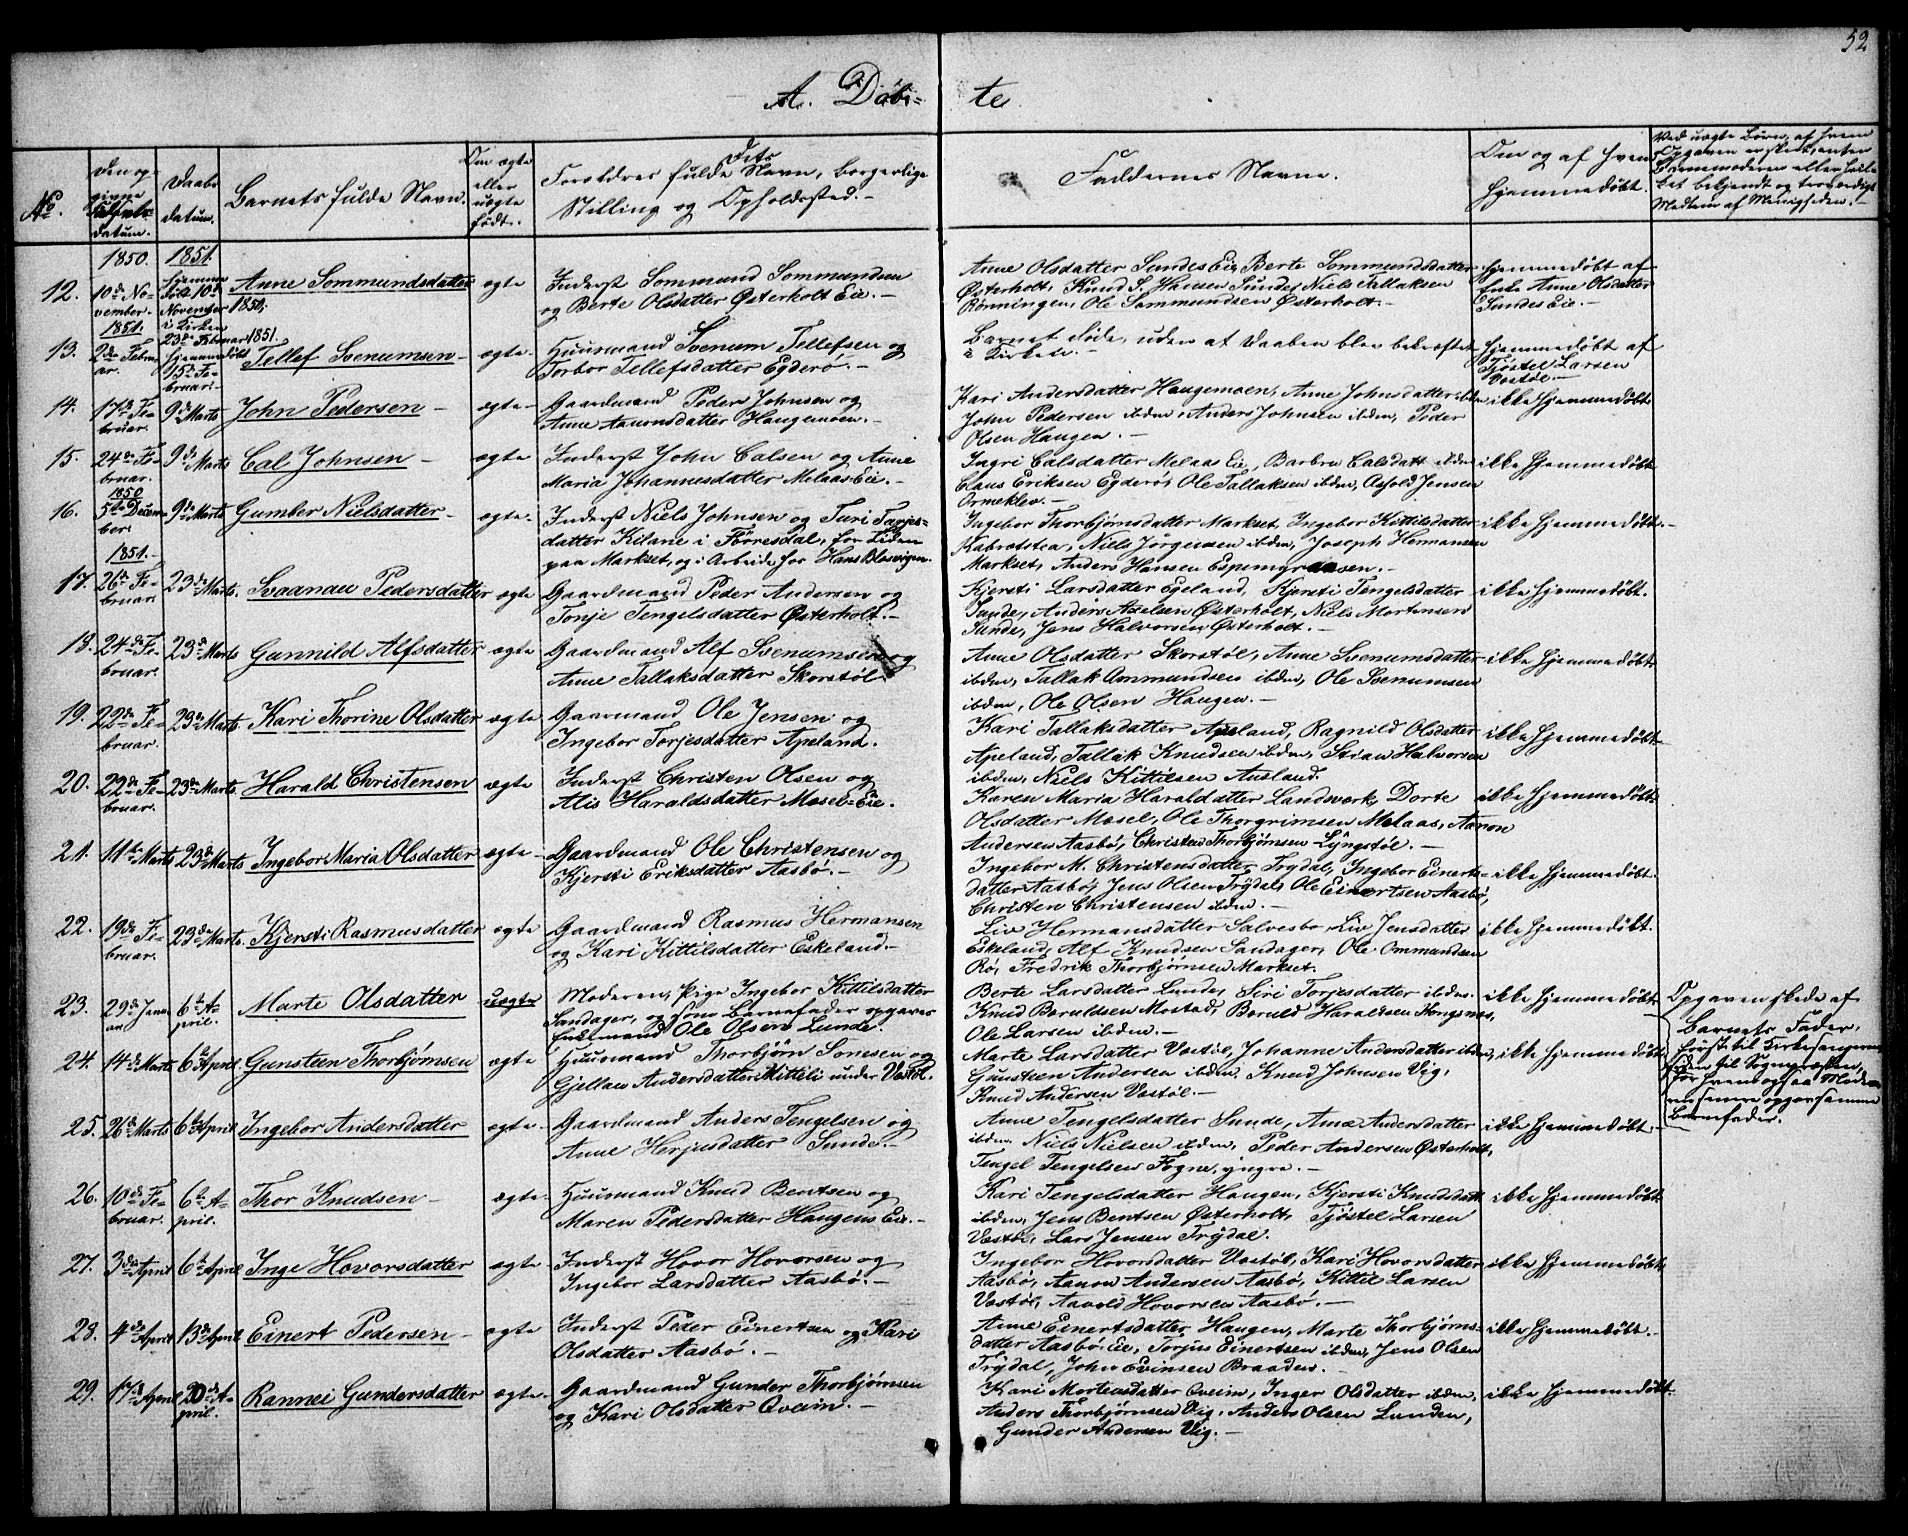 52
A. Døb= te
No.
Den op-
givne
Fødsels-
datum.
Daabs-
datum.
Barnets fulde Navn.
Om ægte
eller
uægte
født.
Dets
Forældres fulde Navn, borgerlige
Stilling og Opholdssted.-
Faddernes Navne.
Om og af hvem
hjemmedøbt.
Ved uægte Børn, af hvem
Opgaven er skeet, enten
Barnemoderen eller hele
det bekjendt og troværdigt
Medlem af Menigheden.-
1850. 1851.
12. 10de No-
vember.
hjemme
døbt 10de
November
1850,
i Kirken
23de Februar 1851.
Anne Sommundsdatter
ægte
Inderst Sommund Sommundsen
og Berte Olsdatter Østerholt Eie.-
Anne Olsdatter Sundes Eie, Berte Sommundsdatter
Østerholt, Knud S. Hansen Sundes Niels Tallaksen
Rønningen, Ole Sammundsen Østerholt.-
hjemmedøbt af
Enke Anne Olsdatter
Sundes Eie.-
1851.
13. 2den Febru-
ar.
hjemmedøbt
15de Fe-
bruar.-
Tellef Svenumsen-
ægte-
Huusmand Svenum Tellefsen og
Torbor Tellefsdatter Egderø.-
Barnet døde, uden at Daaben blev bekræftet
i Kirken.-
hjemmedøbt af
Tjøstel Larsen
Vastøl.-
14. 17de Fe-
bruar.
9de Marts
John Pedersen-
ægte-
Gaardmand Peder Johnsen og
Anne Aanonsdatter Haugemoen.-
Kari Andersdatter Haugemoen, Anne Johnsdatter ibden
John Pedersen ibden, Anders Johnsen ibden, Peder
Olsen Haugen.-
ikke hjemmedøbt
15. 24de Fe-
bruar.
9de Marts
Cal Johnsen-
ægte
Inderst John Calsen og Anne
Maria Johannesdatter Melaas Eie.-
Ingri Calsdatter Melaas Eie, Barbru Calsdatt ibden
Claus Eriksen Egderø, Ole Tallaksen ibden, Asfold Jensen
Ormeklev.-
ikke hjemmedøbt
1850
16. 5te Decem-
ber.
9de Marts
Gumber Nielsdatter-
ægte.
Inderst Niels Johnsen og Turi Tarjes-
datter Kilane i Førresdal, for Tiden
paa Markset, og i Arbeide for Hans Olosvigen.
Ingebor Thorbjørnsdatter Markset, Ingebor Kittilsdatter
Kabratstea, Niels Jørgensen ibden, Joseph Hermansen
Markset, Anders Hansen Espemyraasen.-
ikke hjemmedøbt.-
1851.-
17. 26de Fe-
bruar.
23de Marts.
Svaanau Pedersdatter
ægte
Gaardmand Peder Andersen og
Tonje Tengelsdatter Østerholt.-
Kjersti Larsdatter Egeland, Kjersti Tengelsdatter
Sunde, Anders Axelsen Østerholt, Niels Mortensen
Sunde, Jens Halvorsen Østerholt.-
ikke hjemmedøbt.
18. 24de Fe-
bruar.
23de Marts
Gunnild Alfsdatter
ægte
Gaardmand Alf Svenumsen og
Anne Tallaksdatter Skorstøl.
Anne Olsdatter Skorstøl, Anne Svenumsdatter
ibden, Tallak Ommundsen ibden, Ole Svenumsen
ibden, Ole Olsen Haugen.-
ikke hjemmedøbt
19. 22de Fe-
bruar.
23de Marts.
Kari Thorine Olsdatter
ægte
Gaarmand Ole Jensen og
Ingebor Torjesdatter Apeland.
Kari Tallaksdatter Apeland, Ragnild Olsdatter
Apeland, Tallak Knudsen ibden, Stian Halvorsen
ibden, Niels Kittilsen Ausland.
ikke hjemmedøbt
20. 22de Fe-
bruar.
23de Marts.
Harald Christensen
ægte
Inderst Christen Olsen og
Alis Haraldsdatter Mosel-Eie.
Karen Maria Haraldatter Landwerk, Dorte
Olsdatter Mosel, Ole Thorgrimsen Melaas, Aanon
Andersen Aasbø, Christen Thorbjørnsen Lyngstøl.-
ikke hjemmedøbt.
21. 11te Marts
23de Marts
Ingebor Maria Olsdatter
ægte-
Gaardmand Ole Christensen og
Kjersti Eriksdatter Aasbø.-
Ingebor M. Christensdatter, Trydal, Ingebor Einerts-
datter Aasbø, Jens Olsen Trydal, Ole Einertsen Aasbø,
Christen Christensen ibden.-
ikke hjemmedøbt.
22. 19de Fe-
bruar.
23de Marts.
Kjersti Rasmusdatter
ægte
Gaardmand Rasmus Hermansen
og Kari Kittilsdatter Eskeland.-
Liv Hermansdatter Salvesbo, Liv Jensdatter
Eskeland, Alf Knudsen Sandager, Ole Ommundsen
Rø, Fredrik Thorbjørnsen Markset.
ikke hjemmedøbt.
23. 29de Janu-
ar.
6te A-
pril.
Marte Olsdatter
uægte
Moderen, Pige Ingebor Kittilsdatter
Sandager, og som Barnefader opgaves
Enkemand Ole Olsen Lunde.
Berte Larsdatter Lunde, Siri Torjesdatter ibden.
Knud Boruldsen Mostad, Boruld Haraldsen Kongsnas,
Ole Larsen ibden.-
ikke hjemmedøbt
Opgaven skede af
Barnets Fader,
først til Kirkesangeren
siden til Sognepræsten,
for hvem ogsaa Moder-
en senere opgav samme
Barnefader.
24. 14de Marts
6te April
Gunsteen Thorbjørnsen
ægte
Huusmand Thorbjørn Sonesen og
Gjellau Andersdatter Kitteli under Vastøl.
Marte Larsdatter Vastøl, Johanne Andersdatter ibden,
Gunsteen Andersen ibden, Knud Johnsen Vig,
Knud Andersen Vastøl.-
ikke hjemmedøbt
25. 26de Marts
6te April
Ingebor Andersdatter
ægte.
Gaardmand Anders Tengelsen og
Anne Herjusdatter Sunde.-
Anne Tengelsdatter Sunde, Anne Andersdatter
ibden, Niels Nielsen ibden, Peder Andersen Østerholt,
Tengel Tengelsen Fogne, yngre.-
ikke hjemmedøbt.-
26. 10de Fe-
bruar.
6te A-
pril.
Thor Knudsen-
ægte.
Huusmand Knud Bentsen og
Maren Pedersdatter Haugens Eie.-
Kari Tengelsdatter Haugen, Kjersti Knudsdatt
ibden, Jens Bentsen Østerholt, Tjøstel Larsen
Vastøl, Lars Jensen Trydal.
ikke hjemmedøbt
27. 3die April
6te April
Inge Hovorsdatter
ægte
Inderst Hovor Hovorsen og
Ingebor Larsdatter Aasbø.-
Ingebor Hovorsdatter Vastøl, Kari Hovorsdatter
Aasbø, Aanon Andersen Aasbø, Kittil Larsen
Vastøl, Aavold Hovorsen Aasbø.-
ikke hjemmedøbt
28. 4de April
13de April
Einert Pedersen-
ægte
Inderst Peder Einertsen og Kari
Olsdatter Aasbø.-
Anne Einertsdatter Haugen, Marte Thorbjørns-
datter Aasbø. Eie, Torjus Einertsen ibden, Jens Olsen
Trydal, John Evinsen Braaden.-
ikke hjemmedøbt.-
29. 17de April
20de A-
pril.
Rannei Gundersdatter
ægte.
Gaardmand Gunder Thorbjørnsen
og Kari Olsdatter Qveim.-
Kari Mortensdatter Qveim, Inger Olsdatter ibden,
Anders Thorbjørnsen Vig, Anders Olsen Lunden,
Gunder Andersen Vig.-
ikke hjemmedøbt.